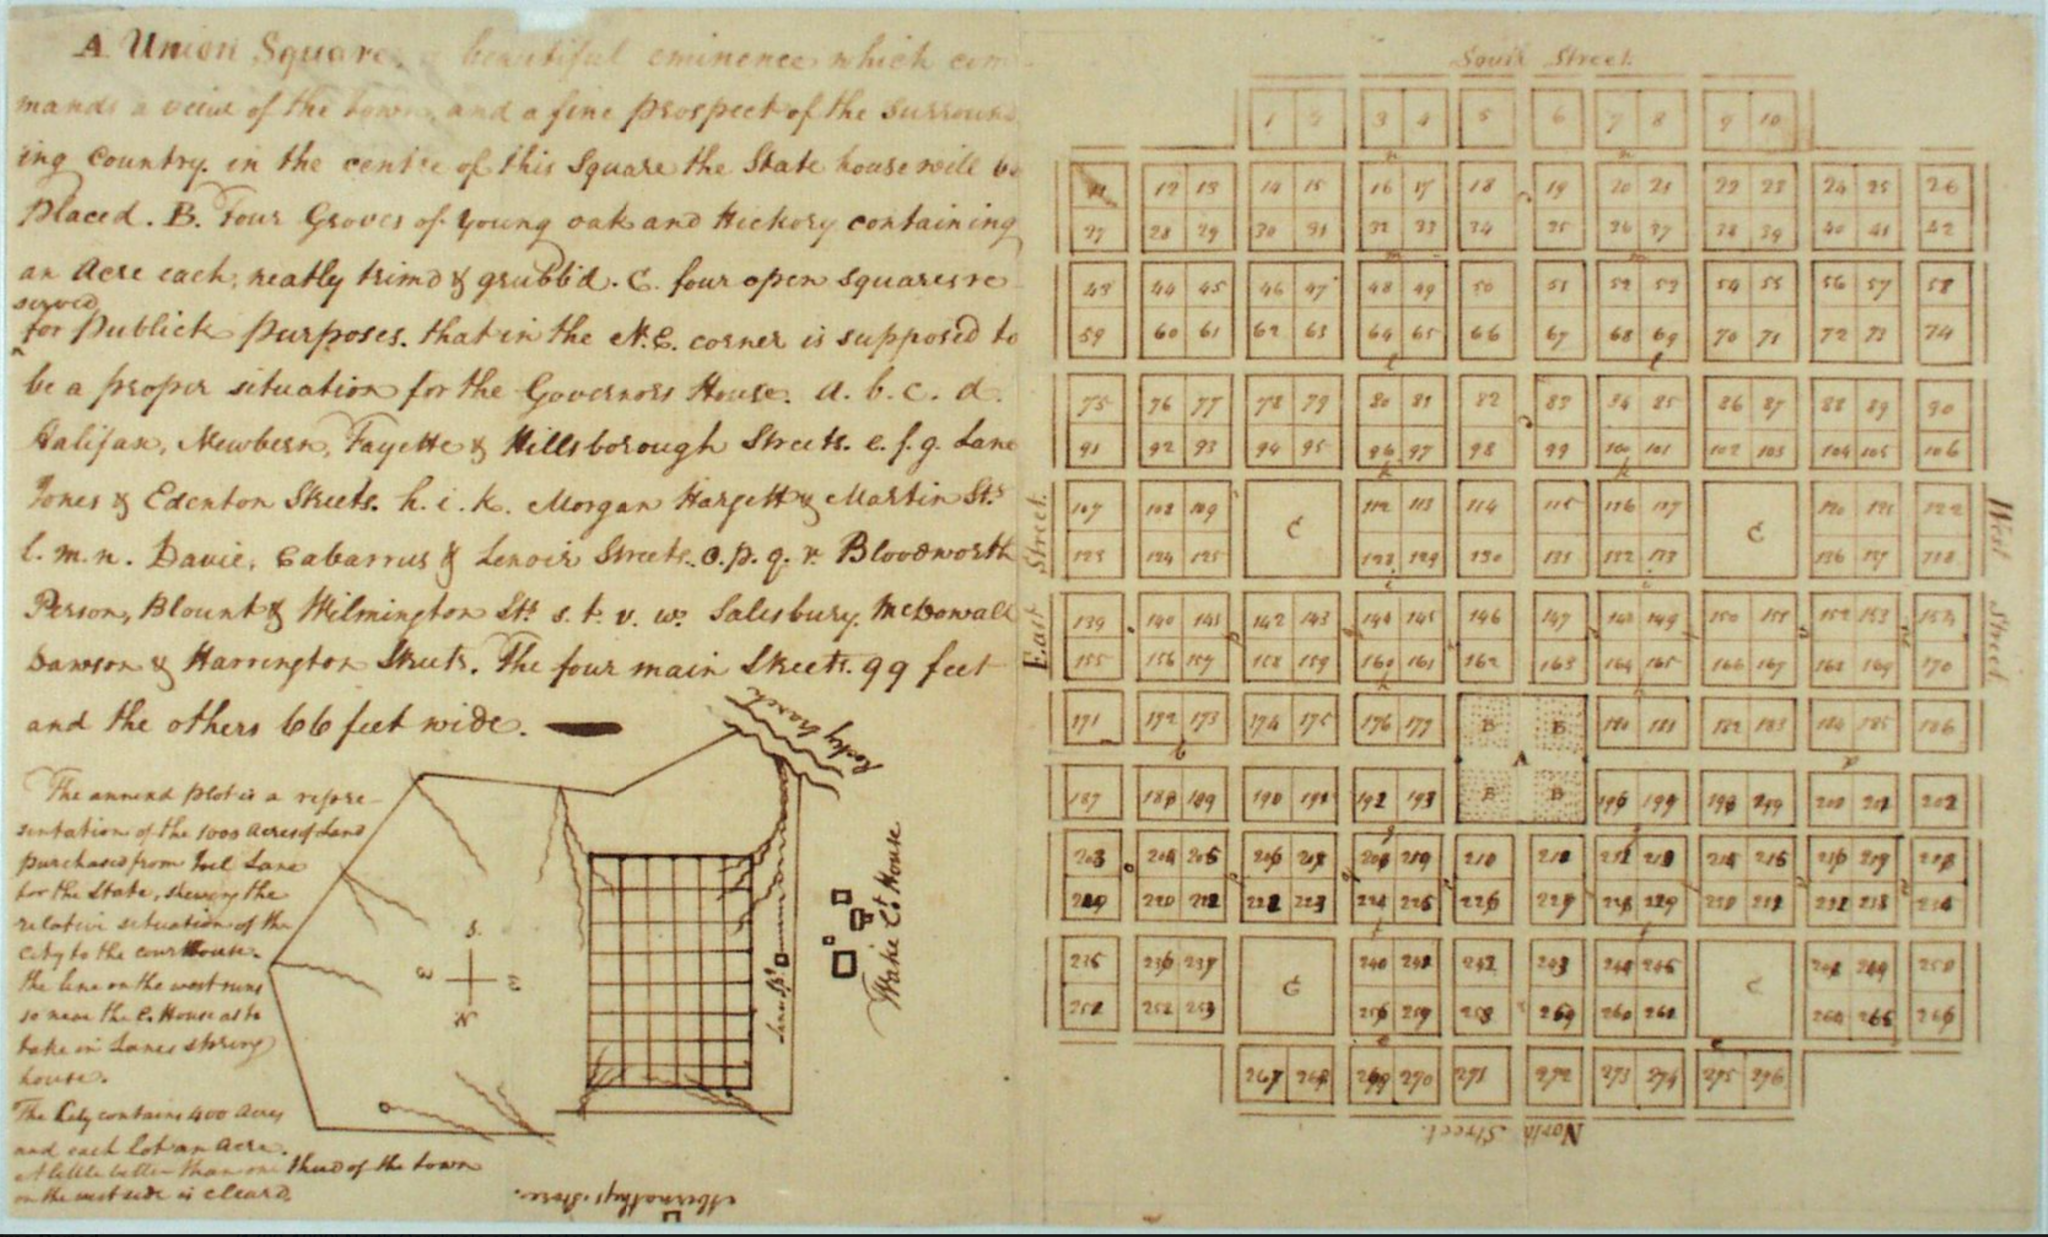 A Union Square, a beautiful eminence which com
mands a veiw of the town and a fine prospect of the surround
ing Country. in the centre of this Square the State house will be
Placed. B. Four Groves of young oak and Hickory containing
an Acre each, neatly trimd & grubb'd. C. four open squares re
served
for Publick Purposes. that in the N.E. corner is supposed to
be a proper situation for the Governors House. a. b. c. d.
Halifax, Newbern, Fayette & Hillsborough Streets. e. f. g. Lane
Jones & Edenton Streets. h. i. k. Morgan Hargett & Martin Sts
l. m. n. Davie, Cabarrus & Lenoir Streets. o. p. q. r. Bloodworth
Person, Blount & Wilmington Sts. s. t. v. w. Salisbury, McDowall
Dawson & Harrington Streets. The four main Streets. 99 feet
and the others 66 feet wide.
The annexd plot is a repre-
sentation of the 1000 Acres of Land
purchased from Joel Lane
for the State, shewing the
relative situation of the
City to the courthouse.
the line on the west runs
so near the C. House as to
take in Lanes spring
house.
The City contains 400 Acres
and each Lot an Acre.
A little better than one third of the town
on the west side is cleard.
Rocky branch
S.
E
W
N
Lanes Sp.
Wake Ct. House
Abernathys Store.
South Street.
1 2 3 4 5 6 7 8 9 10
n n
11 12 13 14 15 16 17 18 19 20 21 22 23 24 25 26
27 28 29 30 31 32 33 34 35 36 37 38 39 40 41 42
m m
43 44 45 46 47 48 49 50 51 52 53 54 55 56 57 58
59 60 61 62 63 64 65 66 67 68 69 70 71 72 73 74
l l
75 76 77 78 79 80 81 82 83 84 85 86 87 88 89 90
91 92 93 94 95 96 97 98 99 100 101 102 103 104 105 106
k k
107 108 109 C 112 113 114 115 116 117 C 120 121 122
123 124 125 128 129 130 131 132 133 136 137 138
i i
East Street.
West Street
139 140 141 142 143 144 145 146 147 148 149 150 151 152 153 154
155 156 157 158 159 160 161 162 163 164 165 166 167 168 169 170
h h
171 172 173 174 175 176 177 B B 180 181 182 183 184 185 186
b A
187 188 189 190 191 192 193 B B 196 199 198 200 201 202
g g
203 204 205 206 208 219 210 212 215 216 219 218
220 222 223 224 225 226 229
f f
235 236 237 C 240 241 242 243 244 245 C 248 249 250
251 252 253 256 259 258 260 261 264 265 266
e e
267 268 269 270 271 272 273 274 275 276
North Street.